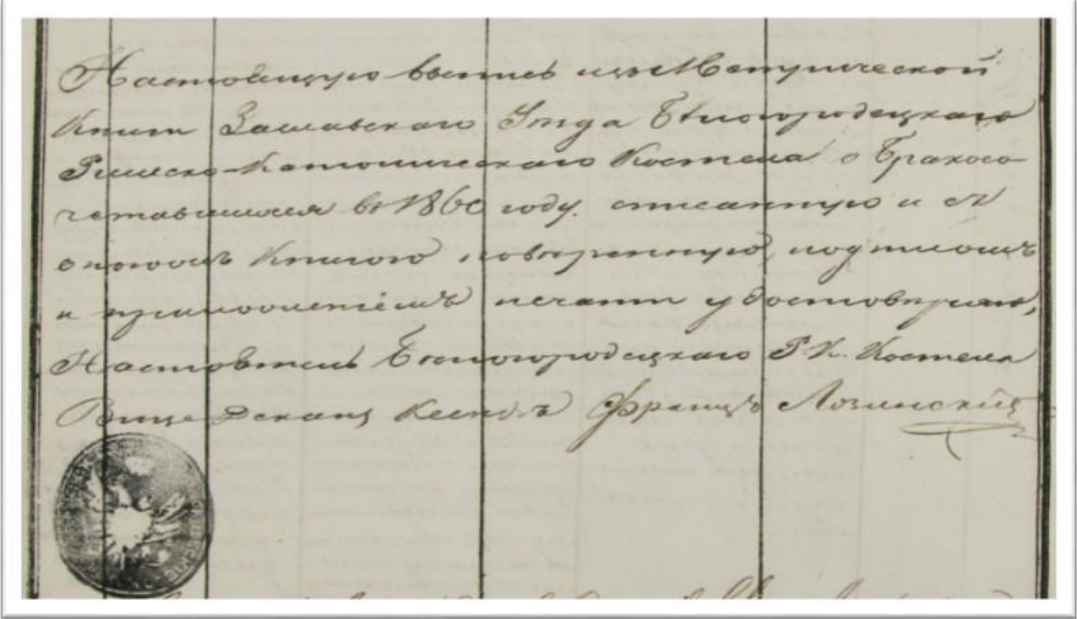 Настоящую выпись изъ Метрической
Книги Заславскаго Уезда Белогородецкаго
Римско-Католическаго Костела о Бракосо-
четавшихся въ 1860 году. списанную и съ
оною Книгою поверенную, подписомъ
и приложеніемъ печати удостоверяю,
Настоятель Белогородецкаго Р. К. Костела
Вице Деканъ Ксендзъ Францъ Лозинскій